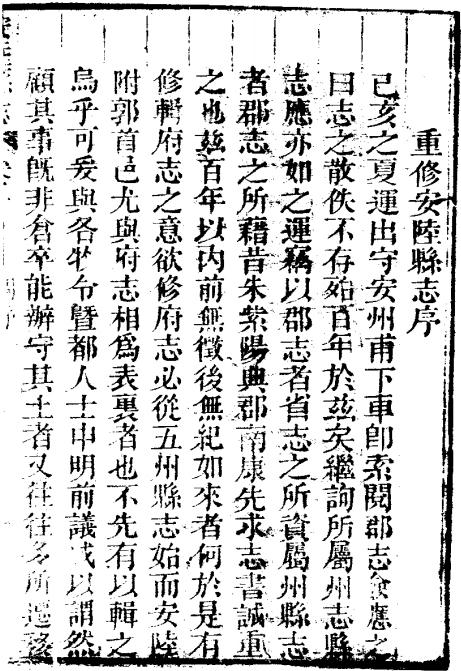 重修安陸縣志序
己亥之夏運出守安州甫下車卽索閱郡志僉應之
曰志之散佚不存殆百年於茲矣繼詢所屬州志縣
志應亦如之運竊以郡志者省志之所資屬州縣志
者郡志之所藉昔朱紫陽典郡南康先求志書誠重
之也茲百年以內前無徵後無紀如來者何於是有
修輯府志之意欲修府志必從五州縣志始而安陸
附郭首邑尤與府志相爲表裏者也不先有以輯之
烏乎可爰與各牧令暨都人士申明前議或以謂然
顧其事旣非倉卒能辦守其土者又往往多所遷